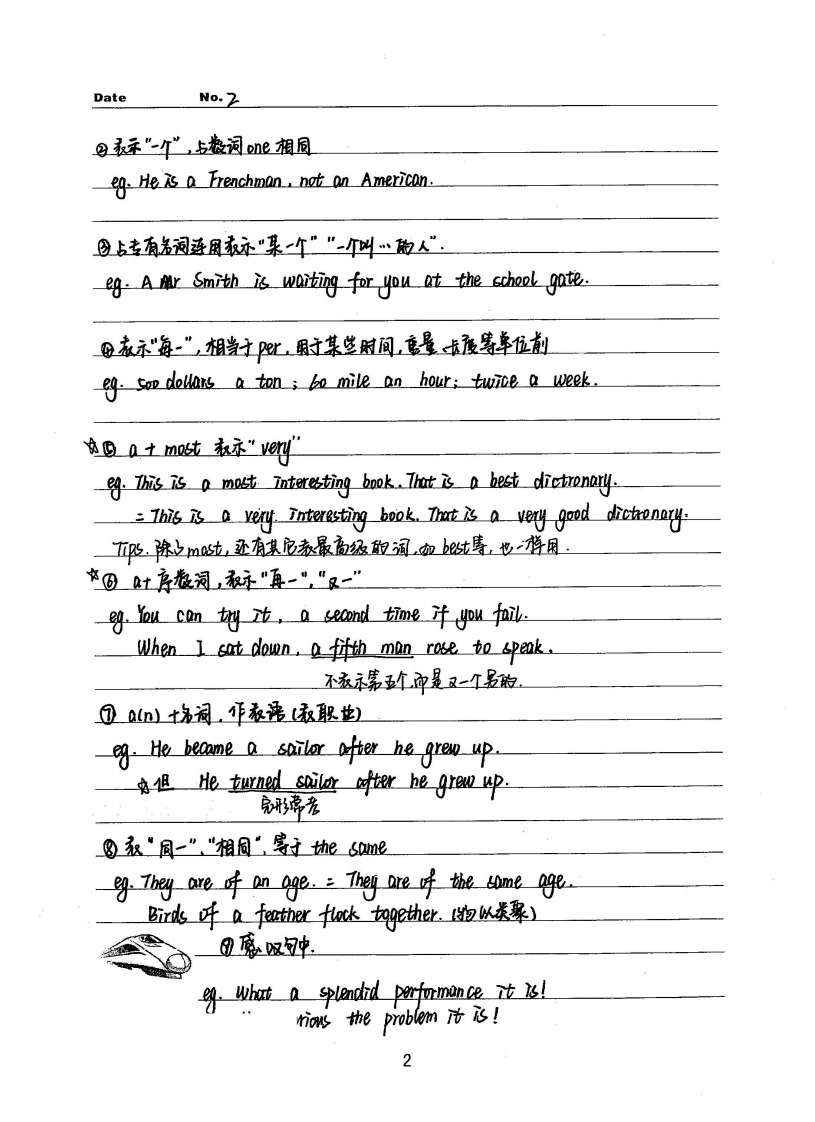 Date No. 2
② 表示"一个",与数词one相同
eg. He is a Frenchman, not an American.
③ 与专有名词连用表示"某一个""一个叫…的人".
eg. A Mr Smith is waiting for you at the school gate.
④ 表示"每一",相当于per,用于某些时间,重量,长度等单位前
eg. 500 dollars a ton; 60 mile an hour; twice a week.
☆⑤ a + most 表示"very"
eg. This is a most interesting book. That is a best dictronary.
= This is a very interesting book. That is a very good dictronary.
Tips. 除了most,还有其它表最高级的词,如best等,也一样用.
☆⑥ a+序数词,表示"再一","又一"
eg. You can try it, a second time if you fail.
When I sat down, a fifth man rose to speak.
不表示第五个,而是又一个另的.
⑦ a(n)+名词,作表语(表职业)
eg. He became a sailor after he grew up.
☆但 He turned sailor after he grew up.
完形常考
⑧ 表"同一","相同",等于the same
eg. They are of an age. = They are of the same age.
Birds of a feather flock together. (物以类聚)
⑨ 感叹句中.
eg. What a splendid performance it is!
rious the problem it is!
2